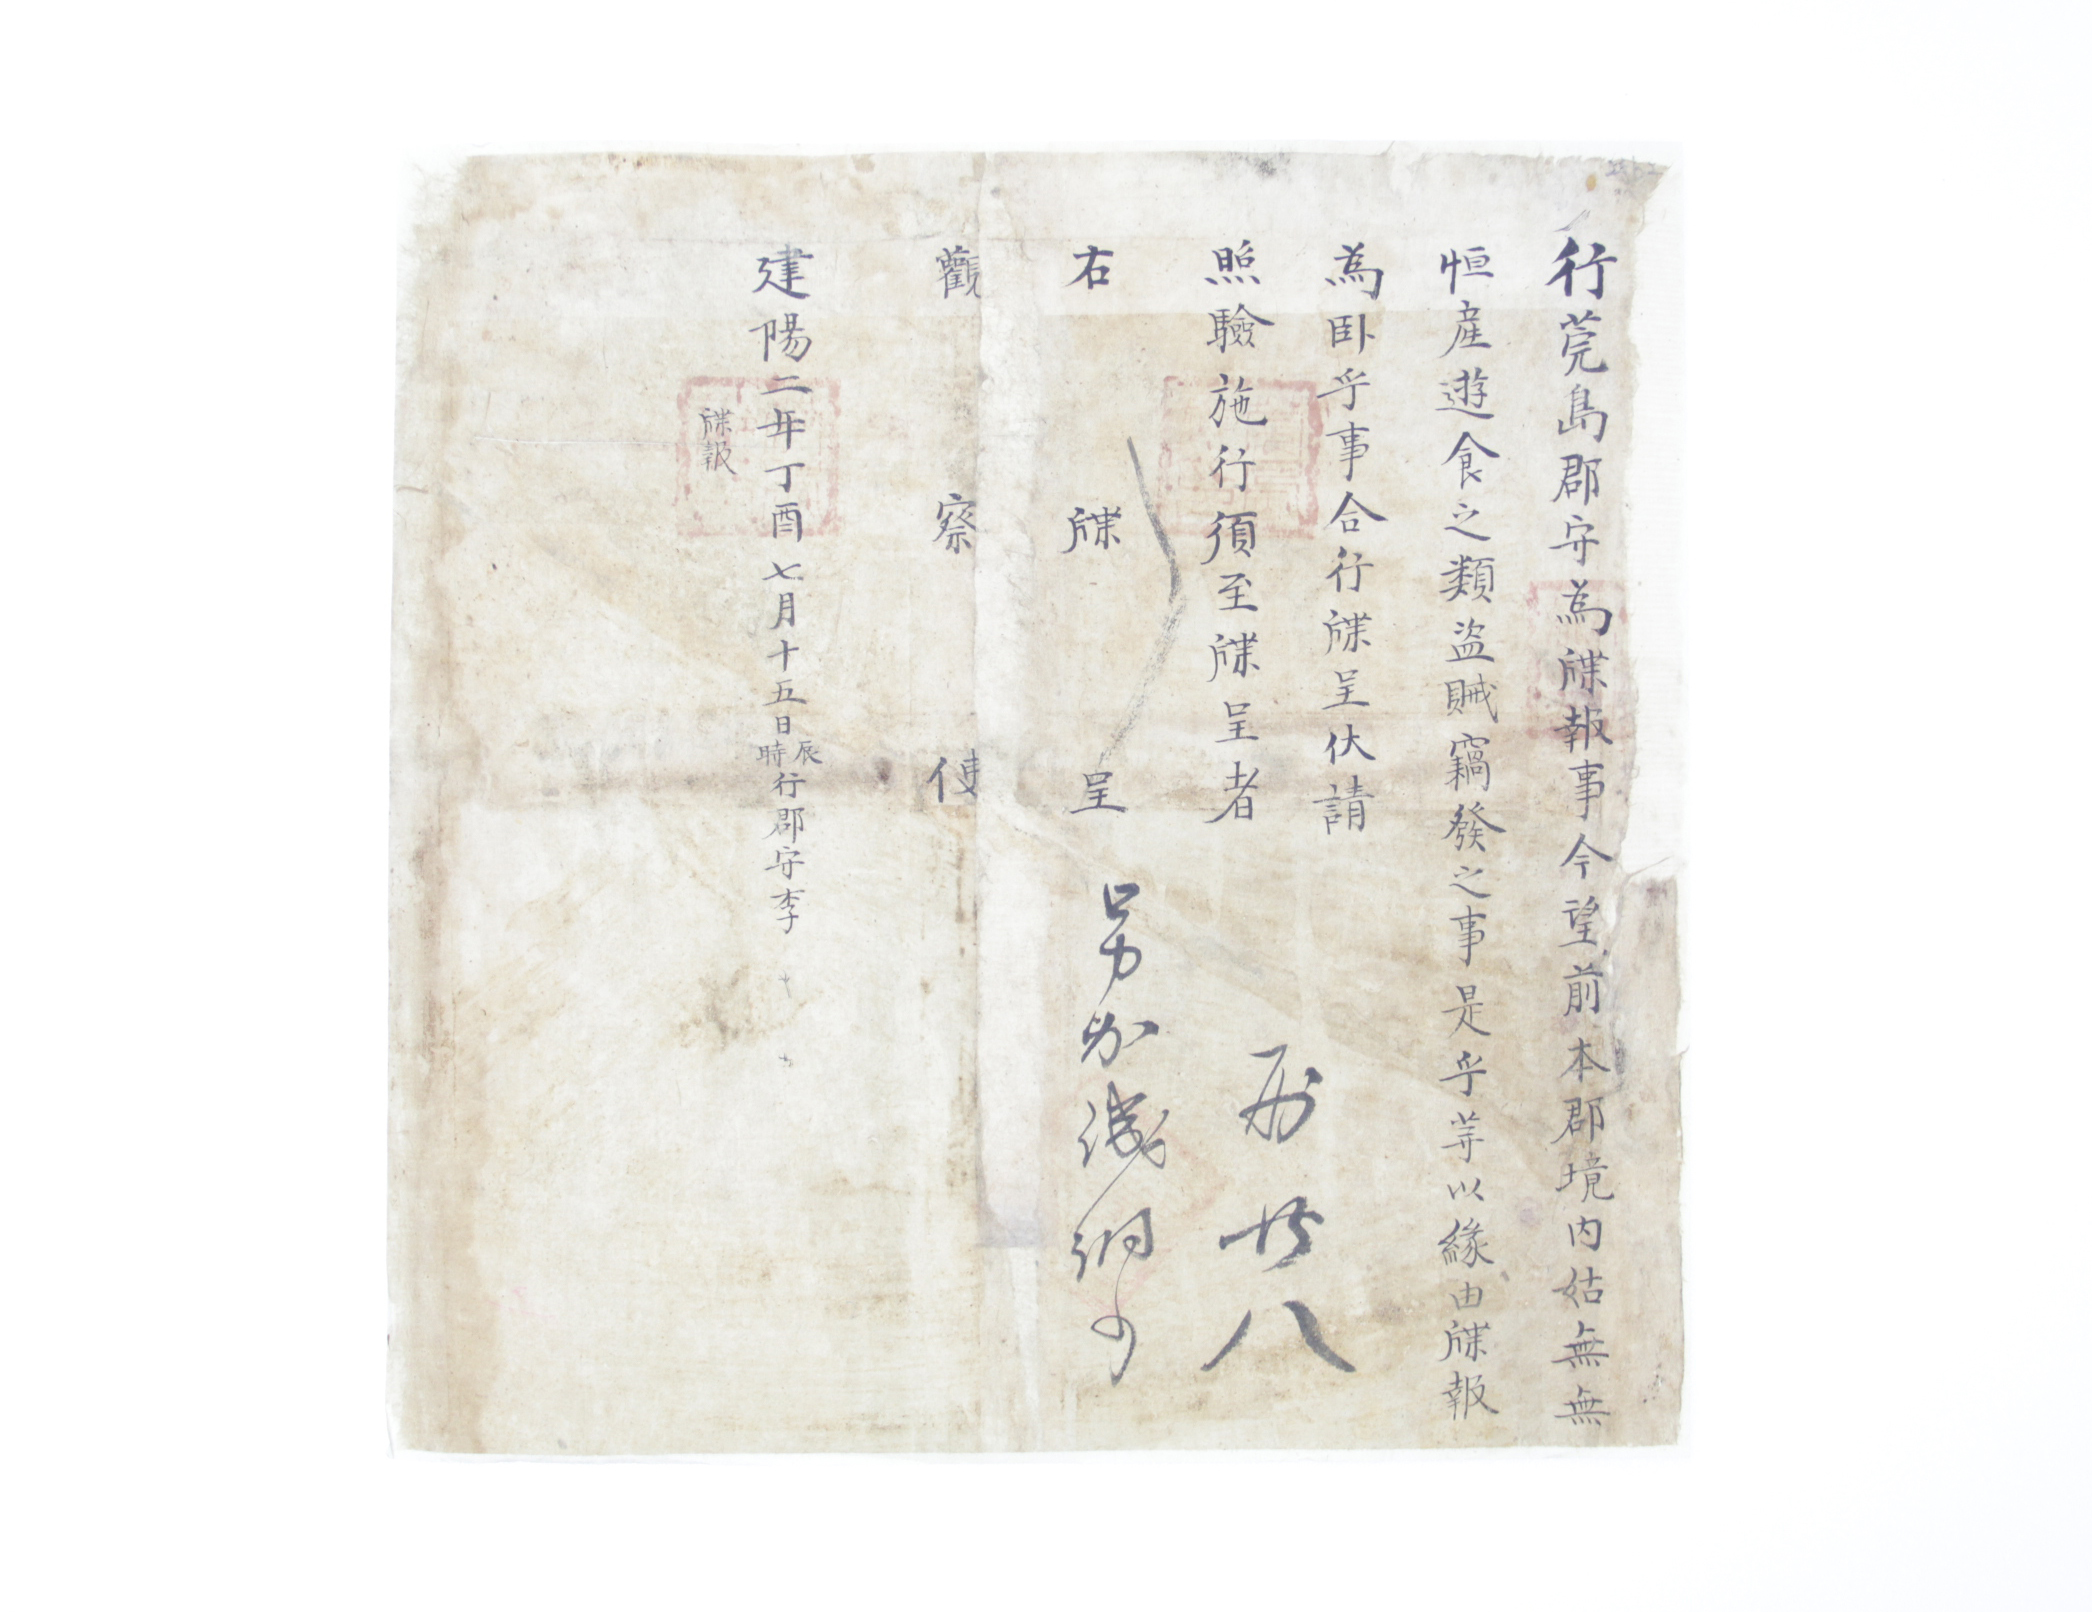 行莞島郡守為牒報事今望前本郡境內姑無無
恒産遊食之類盗賊竊發之事是乎等以緣由牒報
為卧乎事合行牒呈伏請
照驗施行須至牒呈者
右牒呈
觀察使
建陽二年丁酉七月十五日辰時行郡守李
牒報
廿八